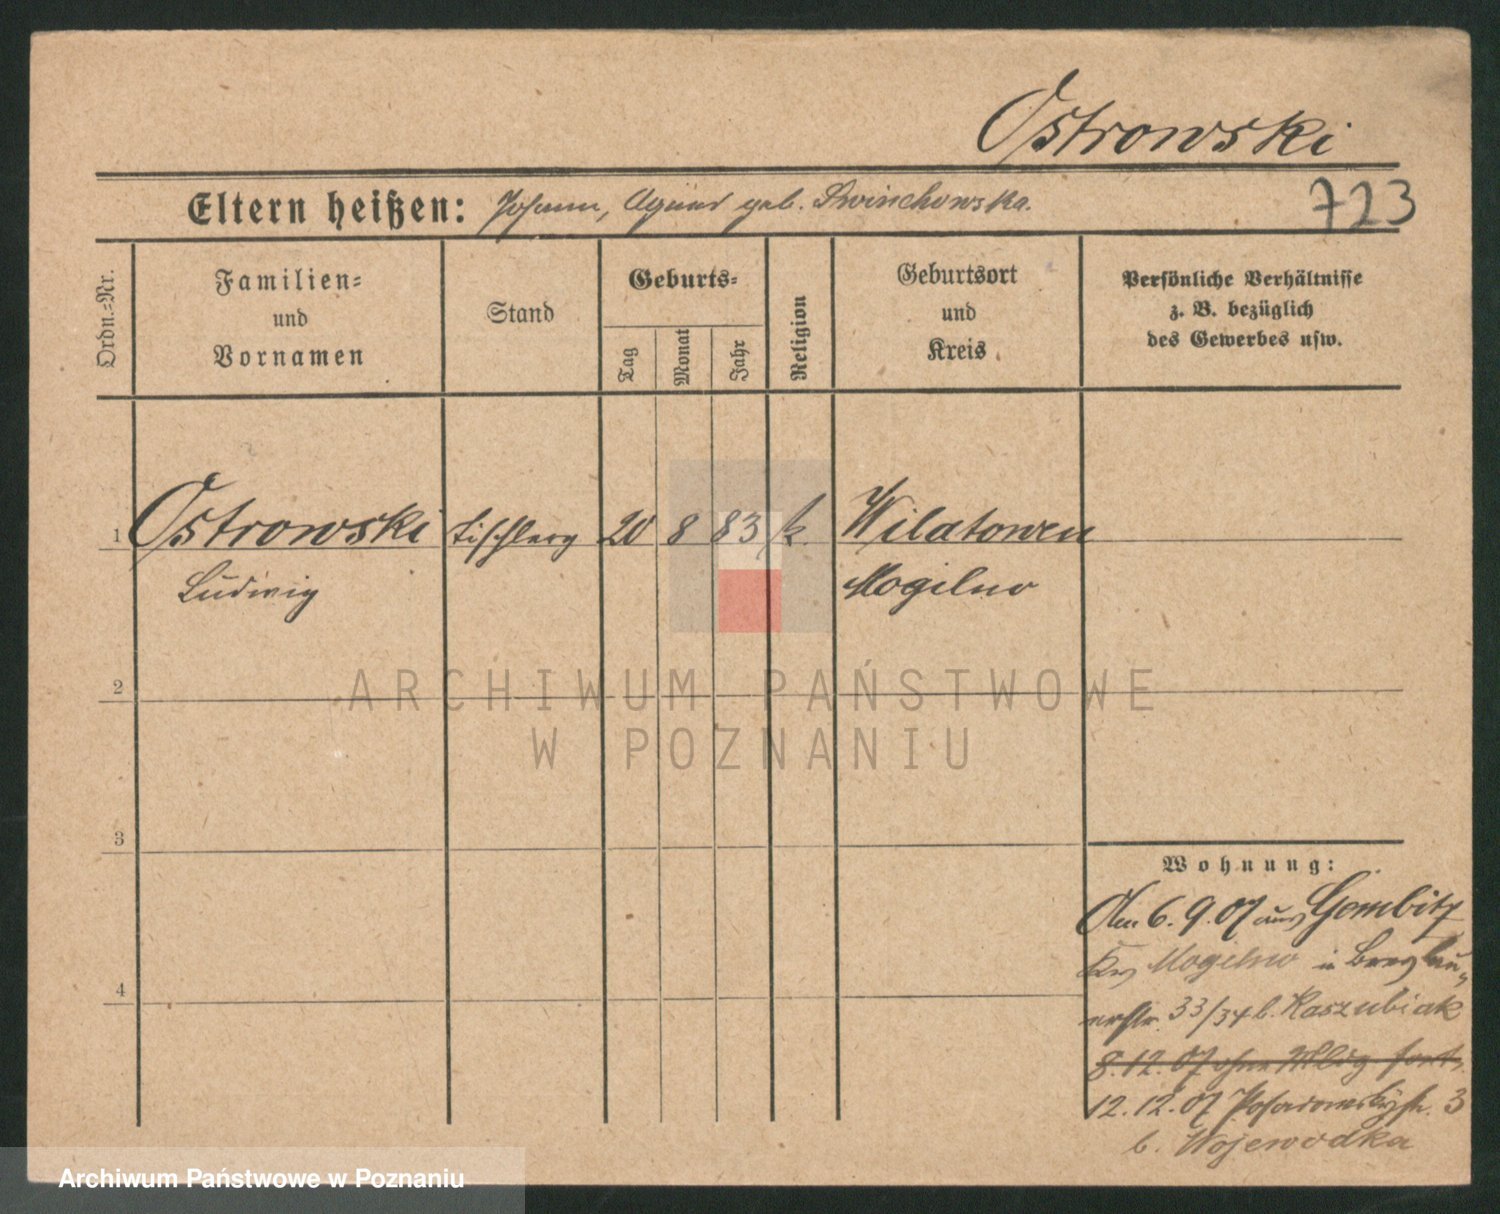 Ostrowski
Eltern heißen: Johann, Agnes geb. Swinchowska.
723
Ordn.-Nr.
Familien-
und
Vornamen
Stand
Geburts-
Tag
Monat
Jahr
Religion
Geburtsort
und
Kreis
Persönliche Verhältnisse
z. B. bezüglich
des Gewerbes usw.
1
Ostrowski
Tischlerg
20
8
83
k.
Wilatowen
Ludwig
Mogilno
2
ARCHIWUM PAŃSTWOWE
W POZNANIU
3
4
Wohnung:
Am 6.9.07 aus Gembitz
Krs Mogilno in Breslau-
erstr. 33/34 b. Kaszubiak
8.12.07 ohne Mldg fort.
12.12.07 Posadowskystr. 3
b. Wojewodka
Archiwum Państwowe w Poznaniu